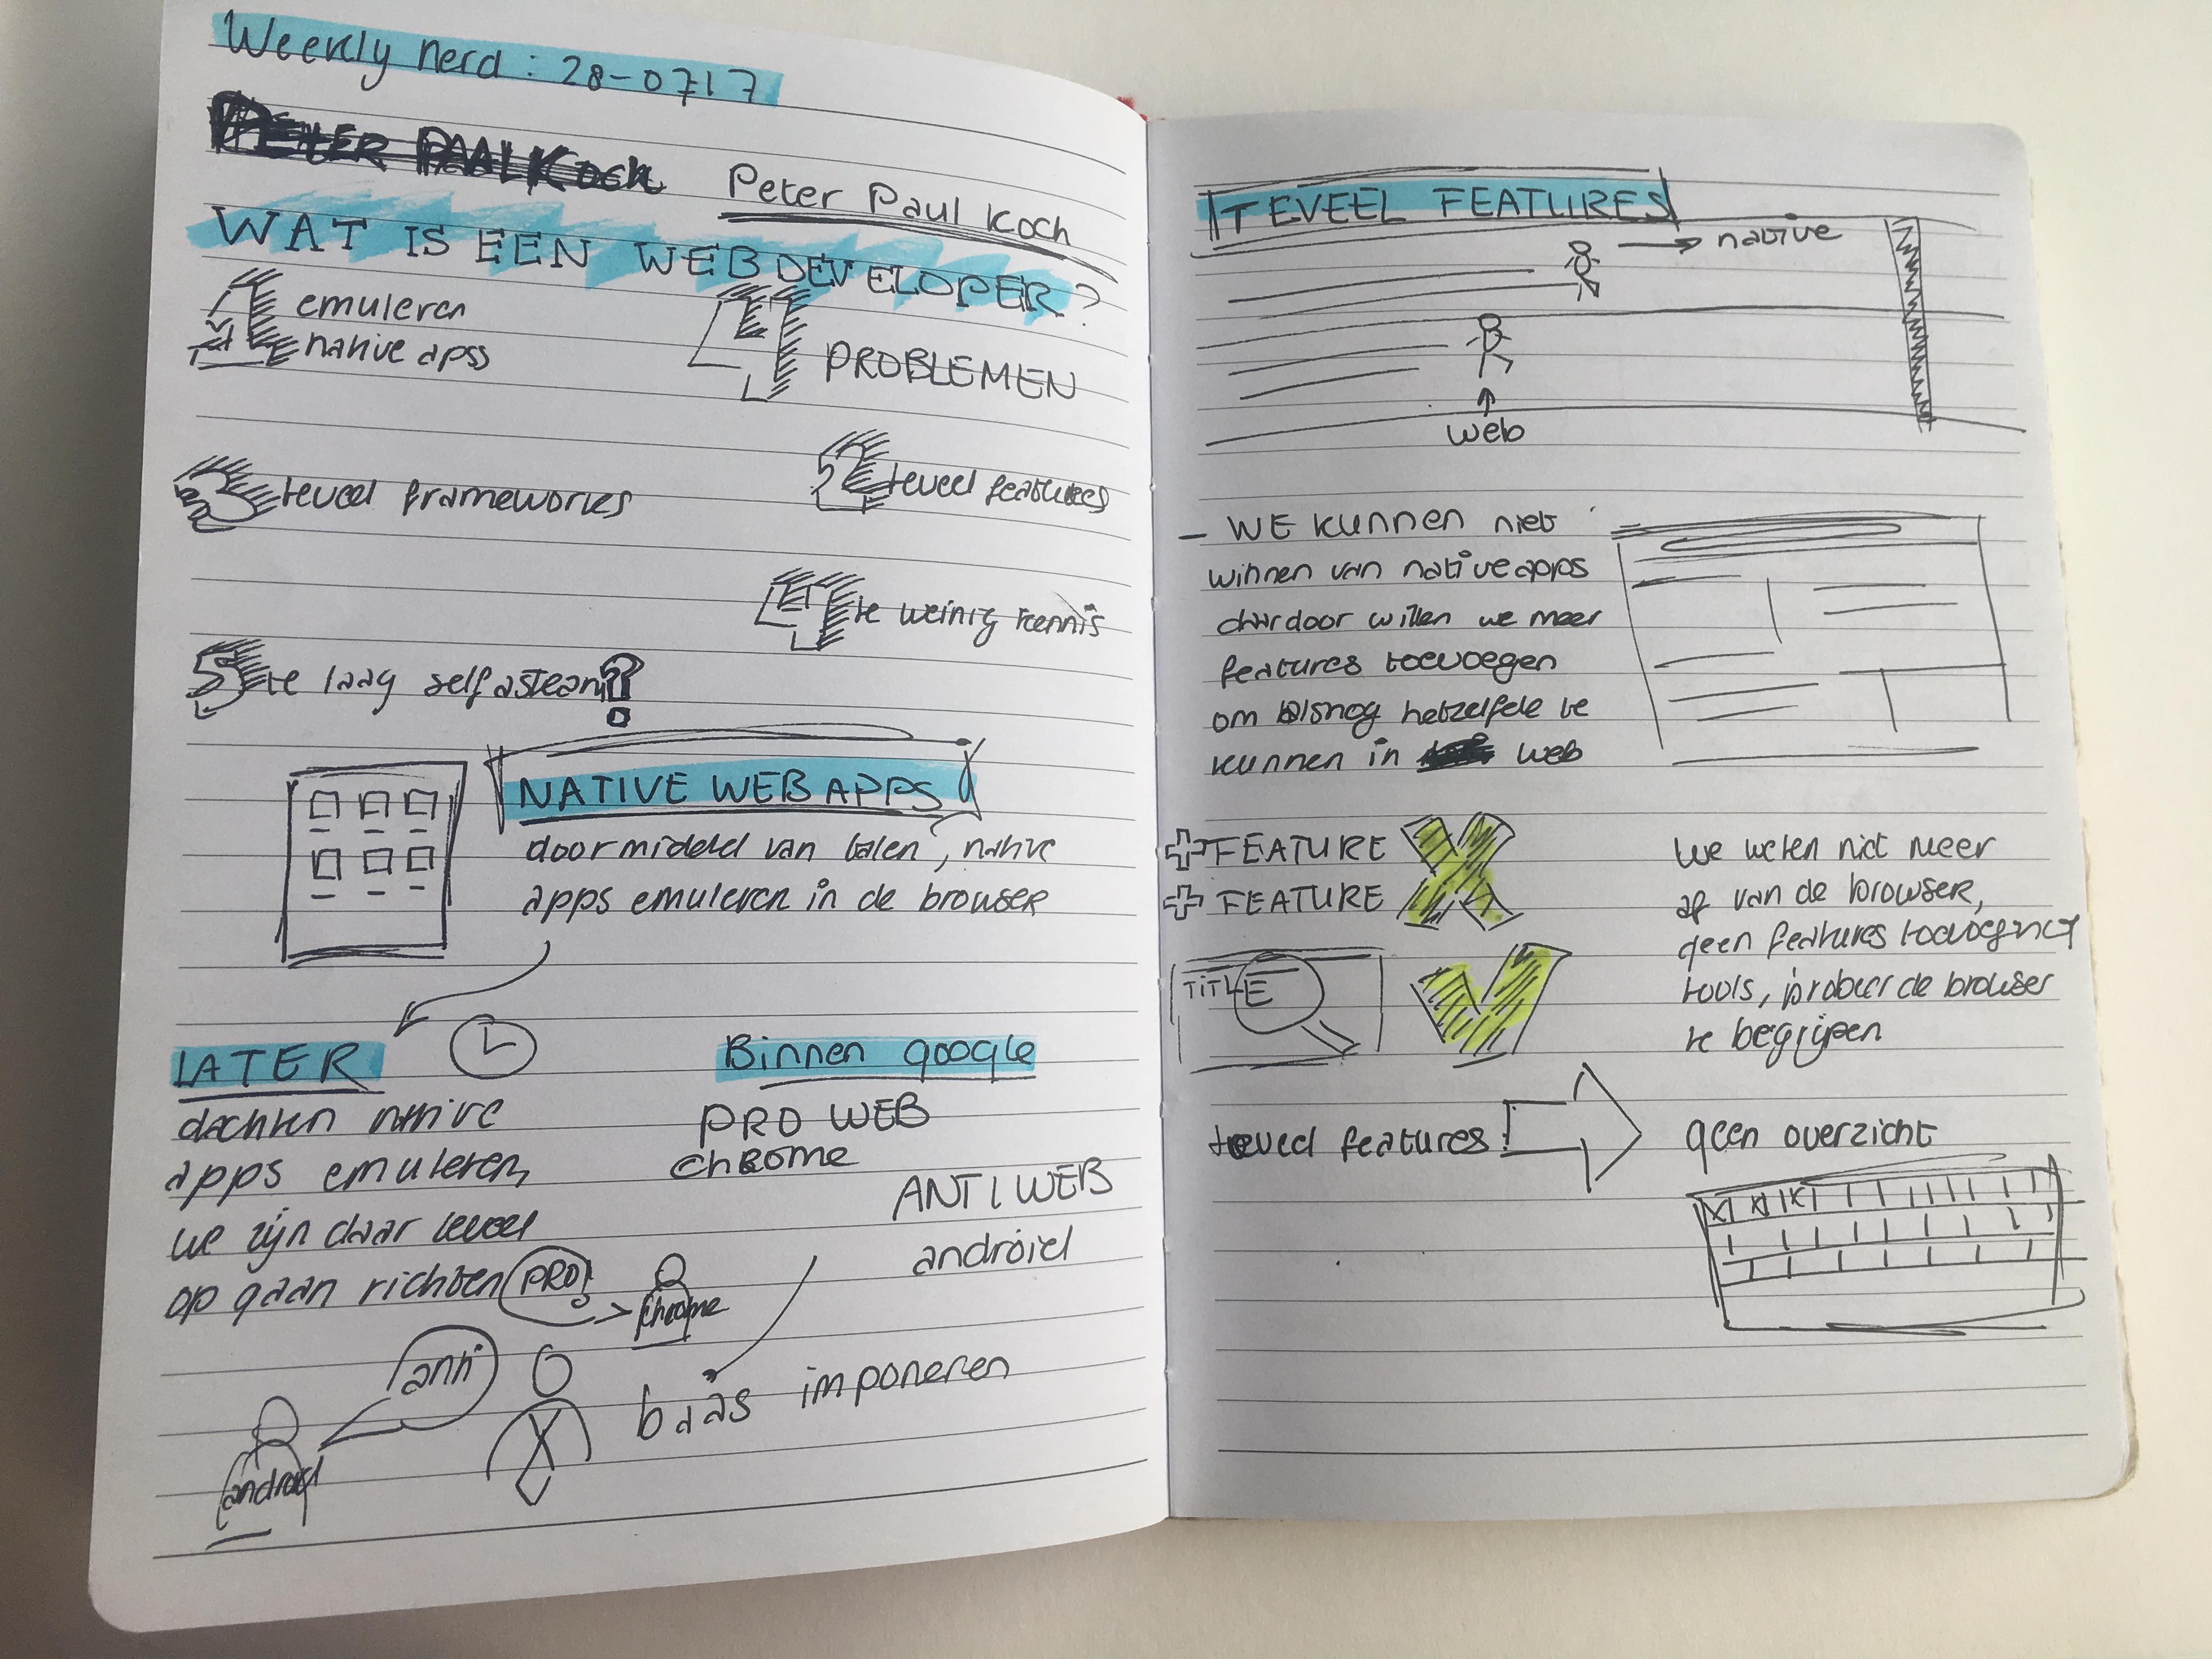 Weekly nerd : 28-0717
PEtER PAALKOch Peter Paul Koch
WAT IS EEN WEB DEVELOPER?
1 emuleren
native apss
4 PROBLEMEN
2 teveel features
3 teveel frameworks
4 te weinig kennis
5 te laag self asteam?
NATIVE WEB APPS
doormiddel van talen, native
apps emuleren in de browser
LATER
dachten native
apps emuleren,
we zijn daar teveel
op gaan richten
Binnen google
PRO WEB
chrome
ANTI WEB
android
PRO!
chrome
anti
android
baas imponeren
TEVEEL FEATURES
native
web
- WE kunnen niet
winnen van native apps
daardoor willen we meer
features toevoegen
om alsnog hetzelfde te
kunnen in web
+ FEATURE
+ FEATURE
TiTLE
We weten niet meer
af van de browser,
geen features toevoeging
tools, probeer de browser
te begrijpen
teveel features
geen overzicht